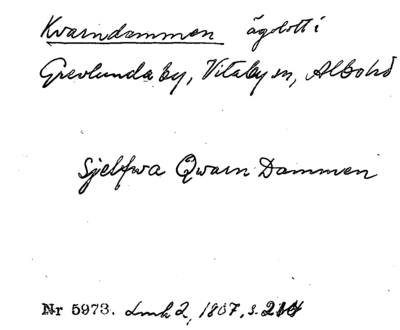 Kvarndammen ägolott i
Grevlunda by, Vitaby sn, Albo hd
Sjelfwa Qwarn Dammen
Nr 5973. Lmh 2, 1807, s. 214